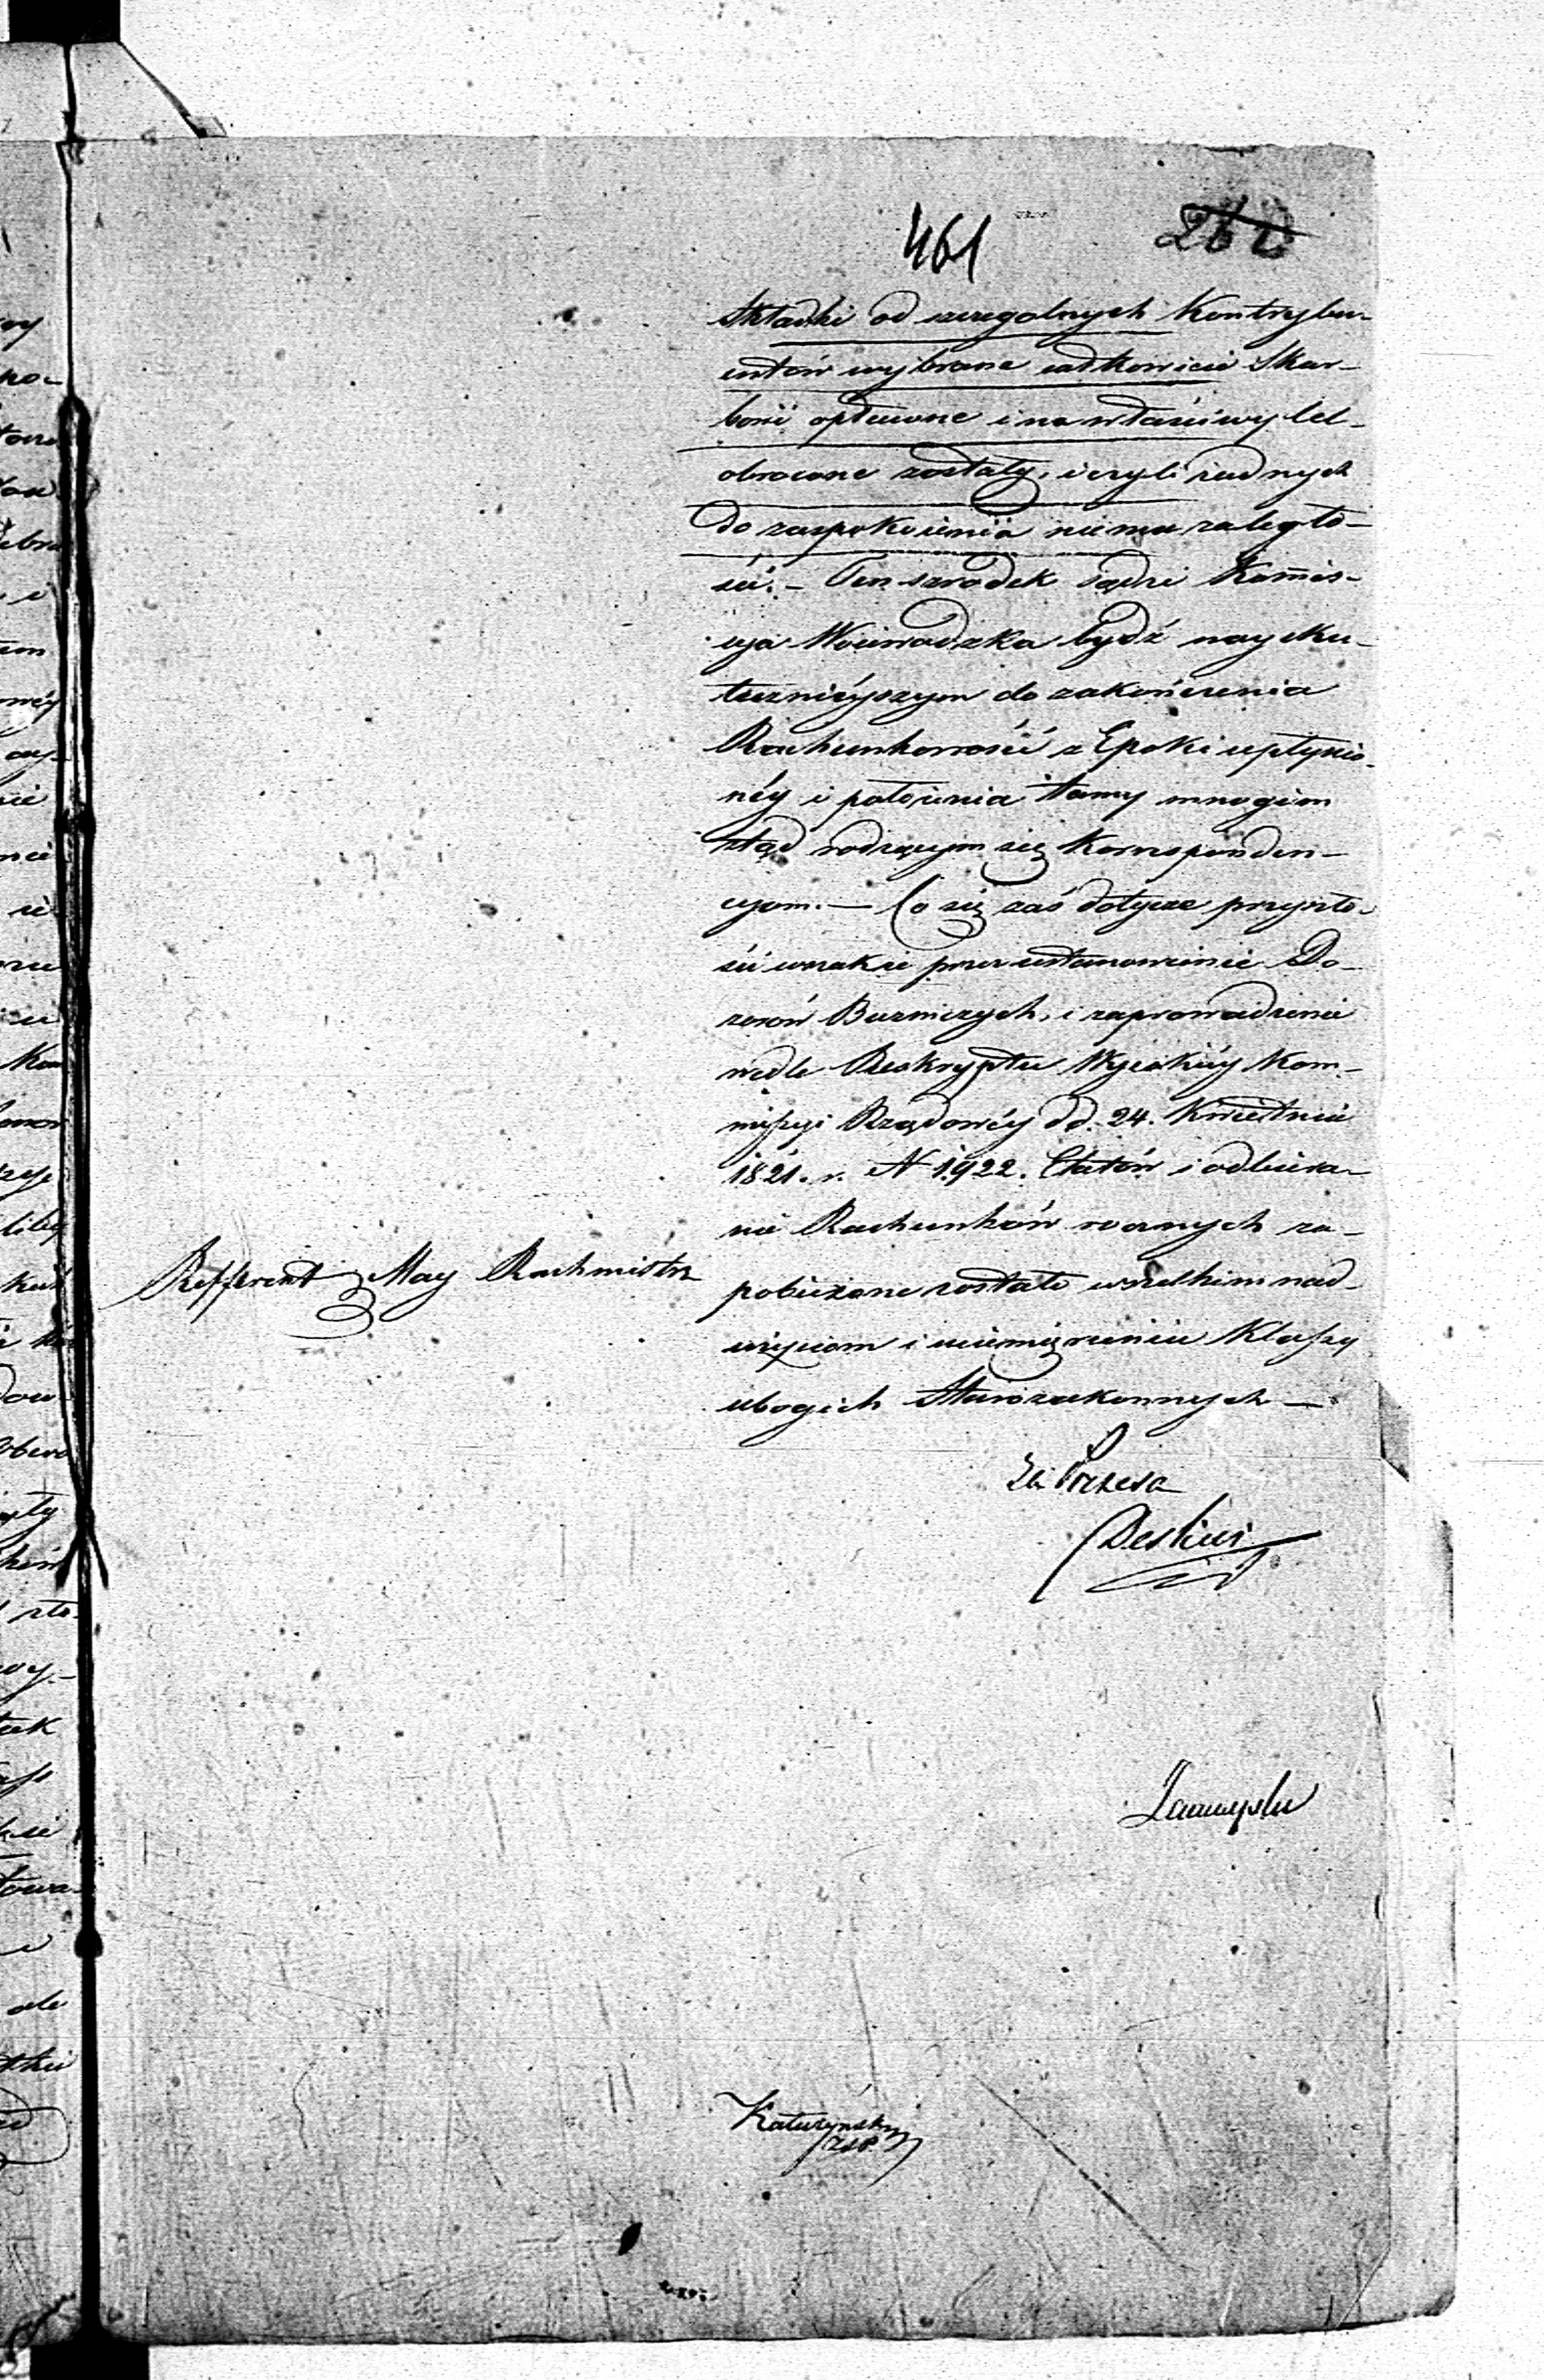 461 262
Składki od szczegolnych Kontrybu-
entów wybrane całkowicie Skar-
bowi opłacone i na właściwy Cel
obrocone zostały, i czyli żadnych
do zaspokoienia niema zaległo-
ści. – Ten szrodek sądzi Kommis-
syja Woiewodzka bydź naysku-
tecznieyszym do zakończenia
Rachunkowości z Epoki upłynio-
néy i położenia tamy mnogim
ztąd rodzącym się Korresponden-
cyjom. – Co się zaś dotycze przyszło-
ści wszakże przez ustanowienie Do-
zorów Bużniczych, i zaprowadzenie
wedle Reskryptu Wysokiéy Kom-
missyi Rządowéy dd. 24. Kwietnia
1821. r. N 1922. Etatów i odbiera-
nie Rachunków rocznych za-
pobieżone zostało wszelkim nad-
użyciom i uciemiężeniu Klassy
ubogich Starozakonnych –
Refferent May Rachmistrz
Za Prezesa
Deskur
Kałuzynsky
ZSP.